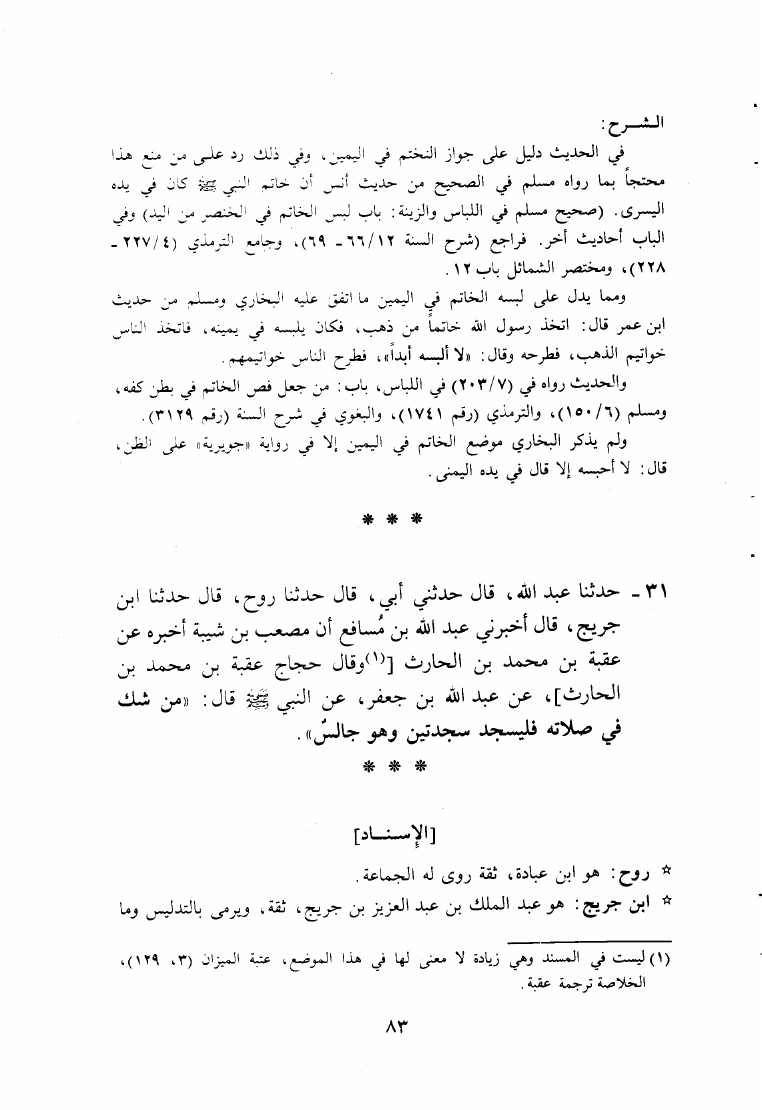 الشـــرح:
في الحديث دليل على جواز التختم في اليمين، وفي ذلك رد على من منع هذا
محتجاً بما رواه مسلم في الصحيح من حديث أنس أن خاتم النبي ﷺ كان في يده
اليسرى. (صحيح مسلم في اللباس والزينة: باب لبس الخاتم في الخنصر من اليد) وفي
الباب أحاديث أخر. فراجع (شرح السنة ٦٦/١٢ ـ ٦٩)، وجامع الترمذي (٢٢٧/٤ ـ
٢٢٨)، ومختصر الشمائل باب ١٢.
ومما يدل على لبسه الخاتم في اليمين ما اتفق عليه البخاري ومسلم من حديث
ابن عمر قال: اتخذ رسول الله خاتماً من ذهب، فكان يلبسه في يمينه، فاتخذ الناس
خواتيم الذهب، فطرحه وقال: «لا ألبسه أبداً»، فطرح الناس خواتيمهم.
والحديث رواه في (٢٠٣/٧) في اللباس، باب: من جعل فص الخاتم في بطن كفه،
ومسلم (١٥٠/٦)، والترمذي (رقم ١٧٤١)، والبغوي في شرح السنة (رقم ٣١٢٩).
ولم يذكر البخاري موضع الخاتم في اليمين إلا في رواية «جويرية» على الظن،
قال: لا أحبسه إلا قال في يده اليمنى.
* * *
٣١ ـ حدثنا عبد الله، قال حدثني أبي، قال حدثنا روح، قال حدثنا ابن
جريج، قال أخبرني عبد الله بن مُسافع أن مصعب بن شيبة أخبره عن
عقبة بن محمد بن الحارث [(١)وقال حجاج عقبة بن محمد بن
الحارث]، عن عبد الله بن جعفر، عن النبي ﷺ قال: «من شك
في صلاته فليسجد سجدتين وهو جالسٌ».
* * *
[الإســناد]
☆ روح: هو ابن عبادة، ثقة روى له الجماعة.
☆ ابن جريج: هو عبد الملك بن عبد العزيز بن جريج، ثقة، ويرمى بالتدليس وما
(١) ليست في المسند وهي زيادة لا معنى لها في هذا الموضع، عتبة الميزان (٣، ١٢٩)،
الخلاصة ترجمة عقبة.
٨٣